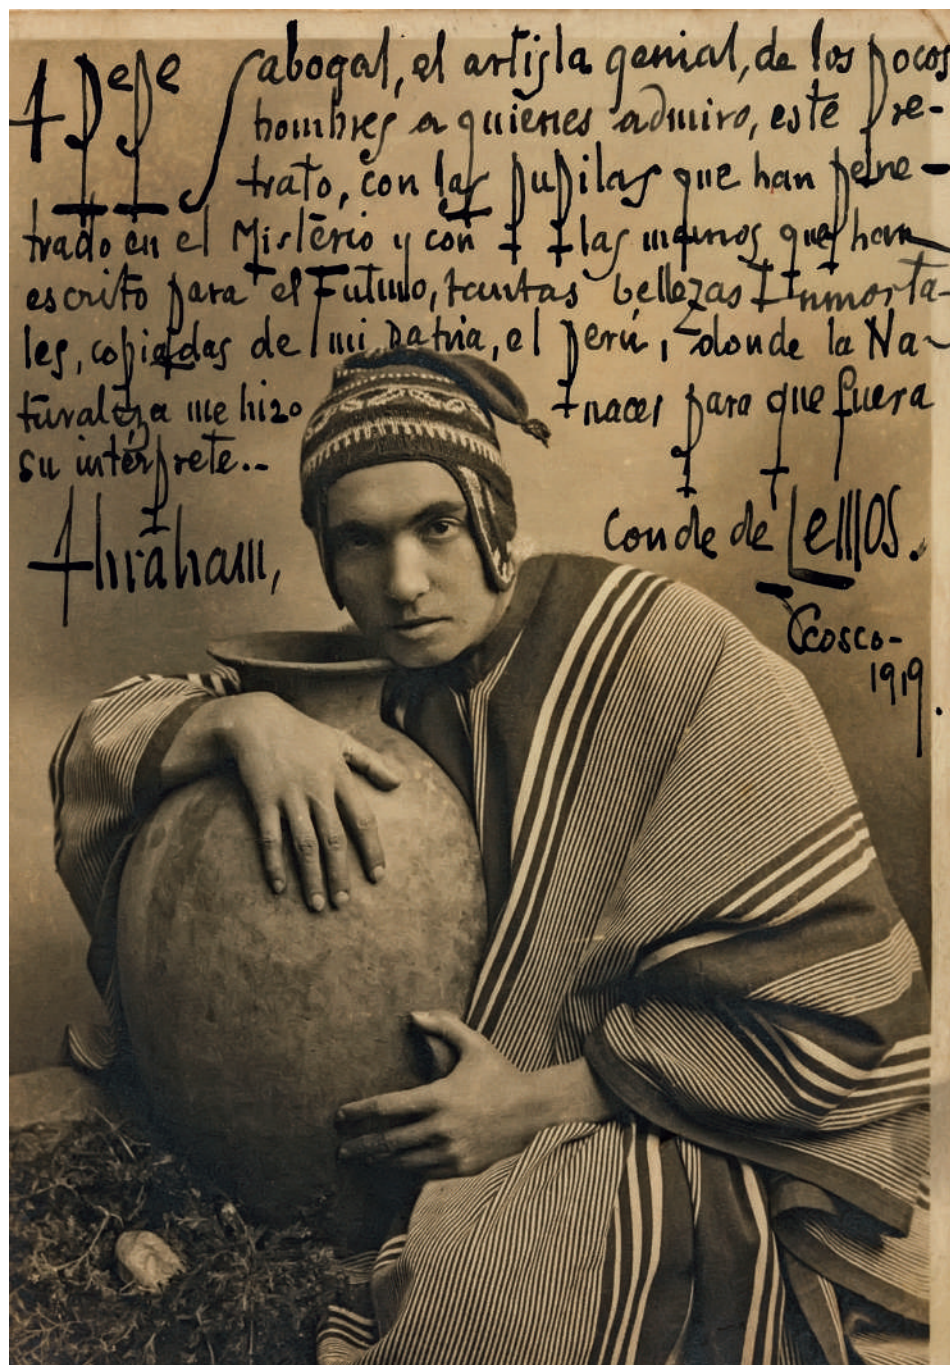 A Pepe Sabogal, el artista genial, de los pocos
hombres a quienes admiro, este Pre-
trato, con las pupilas que han pene-
trado en el Mistério y con las manos que han
escrito para el Futuro, tantas bellezas Inmorta-
les, copiadas de mi Patria, el Perú, donde la Na-
turaleza me hizo nacer para que fuera
su intérprete..
Abraham, Conde de Lemos.
Ccosco-
1919.